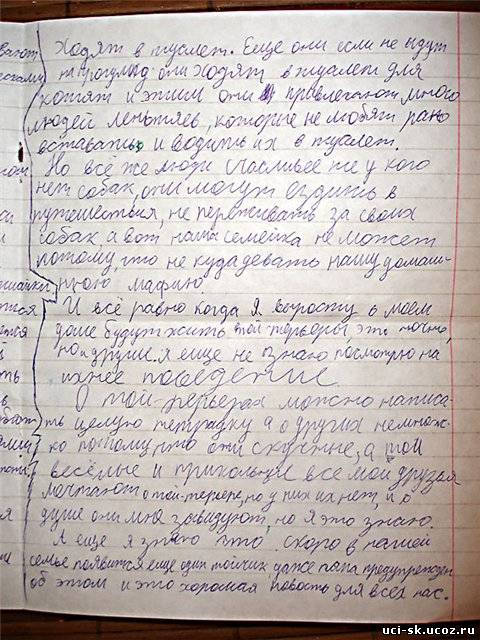 Ходят в туалет. Еще они если не идут
на прогулку они ходят в туалет для
котят и этим они привлекают много
людей лентяев, которые не любят рано
вставать и водить их в туалет.
Но всё же люди счасливее те у кого
нет собак, они могут ездить в
путешествия, не переживать за своих
собак, а вот наша семейка не может
потому, что не куда девать нашу домаш-
нюю мафию.
И всё равно когда я вырасту в моем
доме будут жить той-терьеры, это точно,
но и другие, я еще не знаю посмотрю на
ихнее поведение.
О той-терьерах можно написа-
ть целую тетрадку а о других немнож-
ко потому, что они скучные, а той
весёлые и прикольные все мои друзья
мечтают о той-терьере, но у них их нет, и в
душе они мне завидуют, но я это знаю.
А еще я знаю что скоро в нашей
семье появится еще один тойчик даже папа предупрежден
об этом и это хорошая новость для всех нас.
uci-sk.ucoz.ru